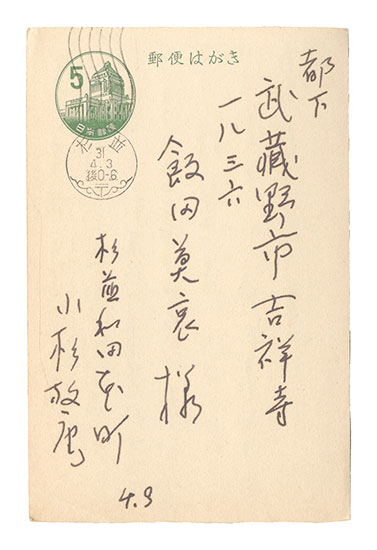 郵便はがき
5
日本郵便
杉並
31
4.3
後0-6
都下
武蔵野市吉祥寺
一八三六
飯田莫哀様
杉並和田本町
小杉放庵
4.3